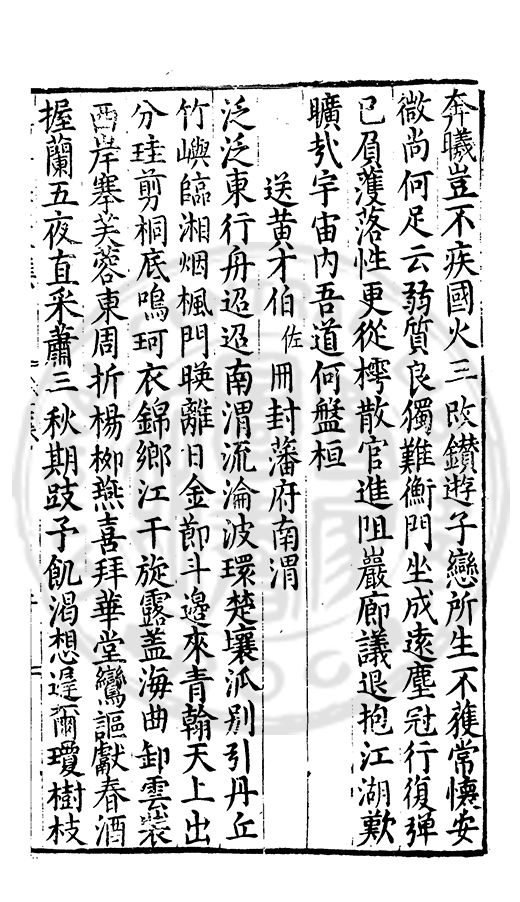 奔曦豈不疾國火三改鑚遊子戀所生不獲常懷安
微尚何足云弱質良獨難衡門坐成遠塵冠行復彈
已負蒦落性更從樗散官進阻巖廊議退抱江湖歎
曠㢤宇宙內吾道何盤桓
送黄才伯佐冊封藩府南渭
泛泛東行舟迢迢南渭流淪波環楚壤派別引丹丘
竹嶼臨湘烟楓門暎離日金節斗邊來青翰天上出
分珪剪桐底鳴珂衣錦鄉江干旋露盖海曲卸雲裝
西岸搴芙蓉東周折楊栁燕喜拜華堂鸞謳獻春酒
握蘭五夜直采蕭三秋期跂予飢渴想遑爾瓊樹枝